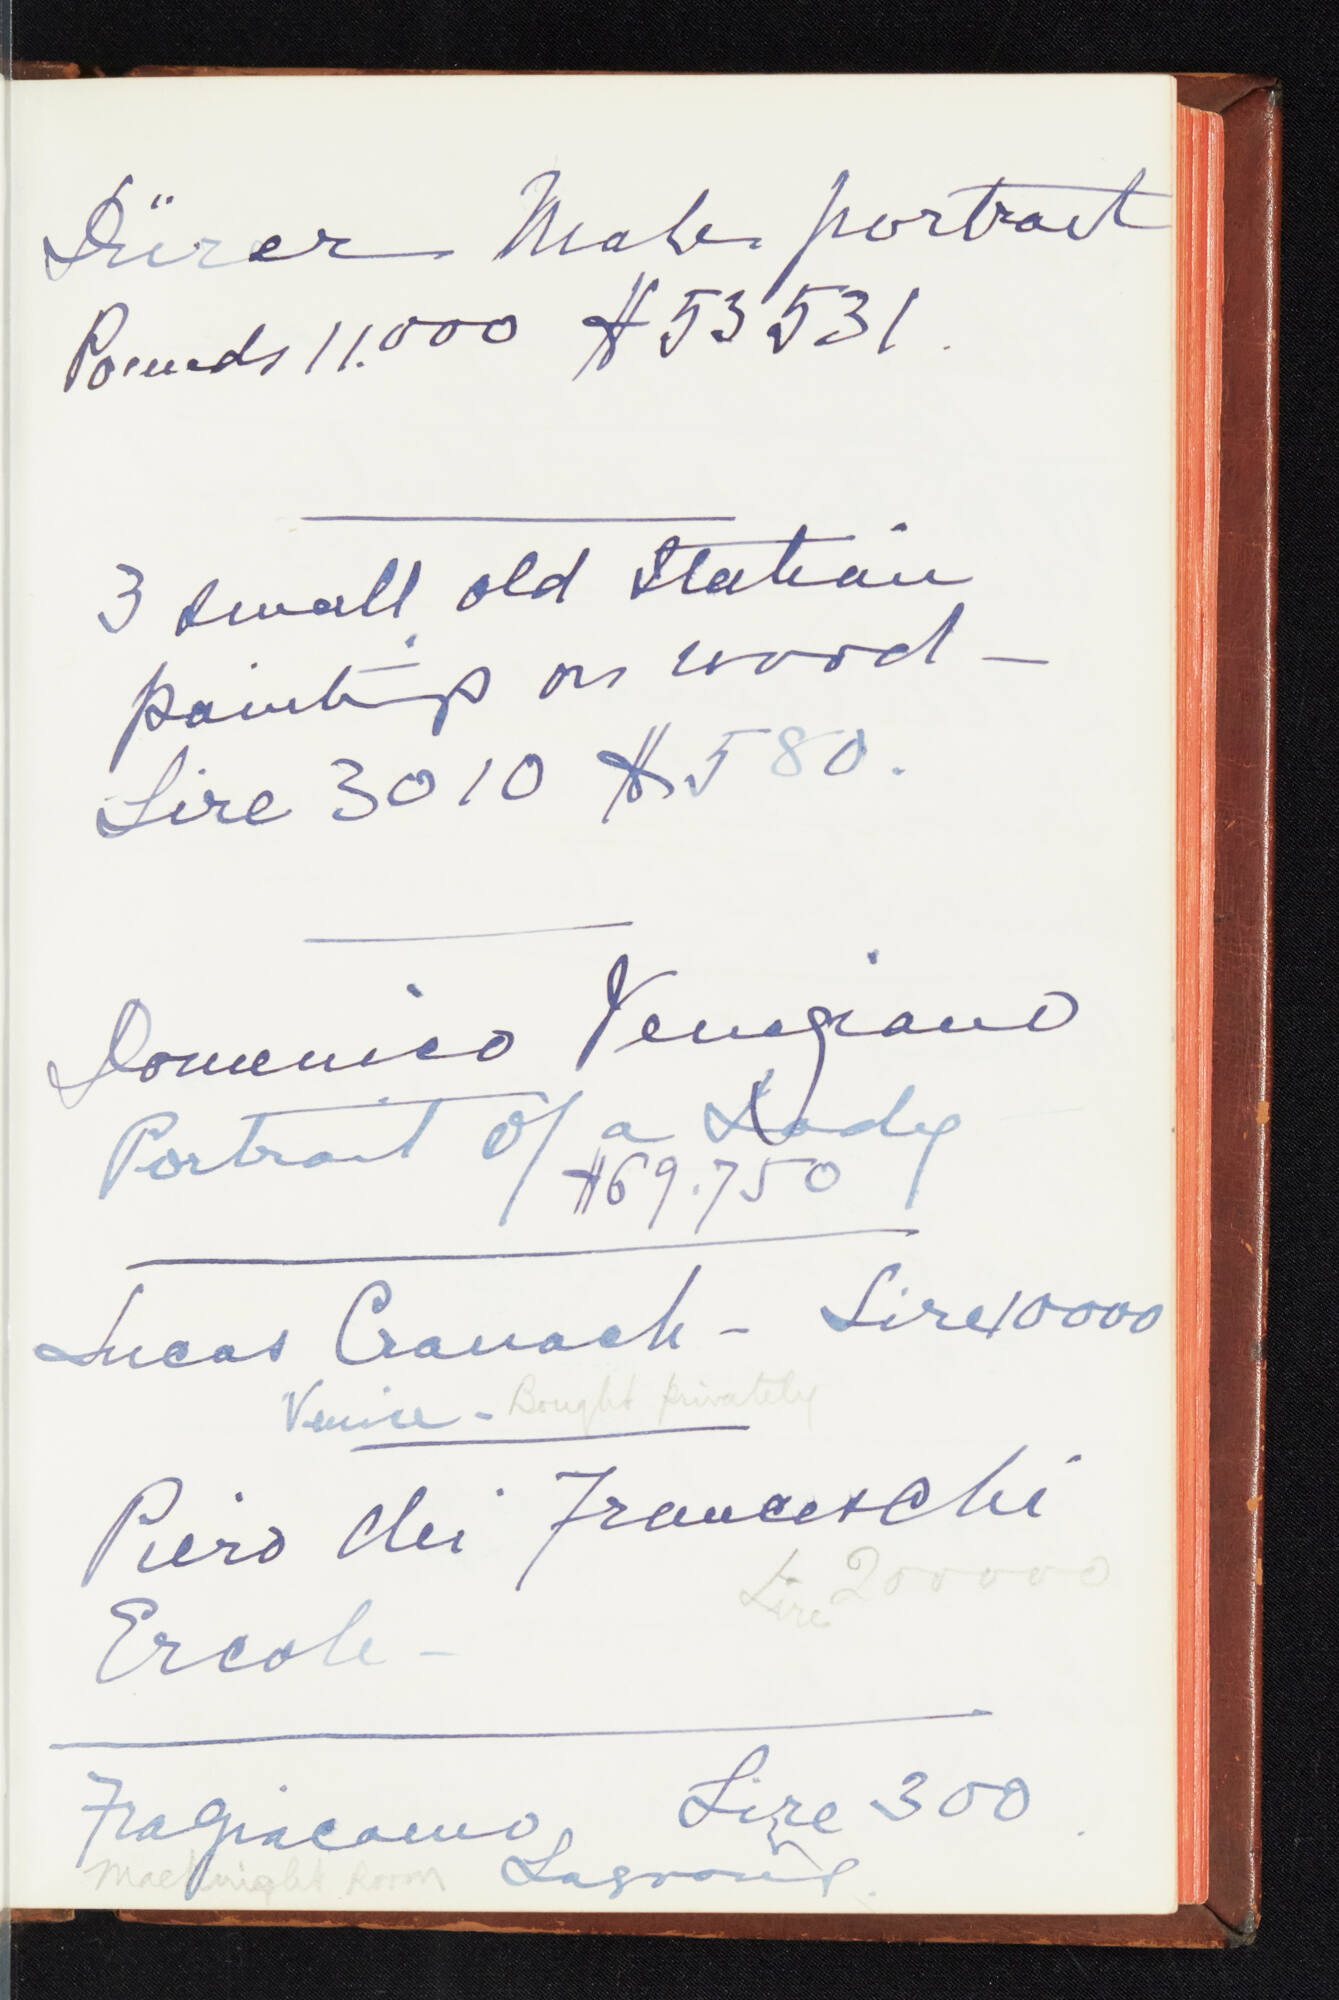 Dürer Male portrait
Pounds 11.000 $53531.
3 small old Italian
paintings on wood –
Lire 3010 $580.
Domenico Veneziano
Portrait of a Lady
$69.750
Lucas Cranach – Lire 10000
Venice – Bought privately
Piero dei Franceschi
Lire 200000
Ercole –
Fragiacomo, Lire 300.
MacKnight Room